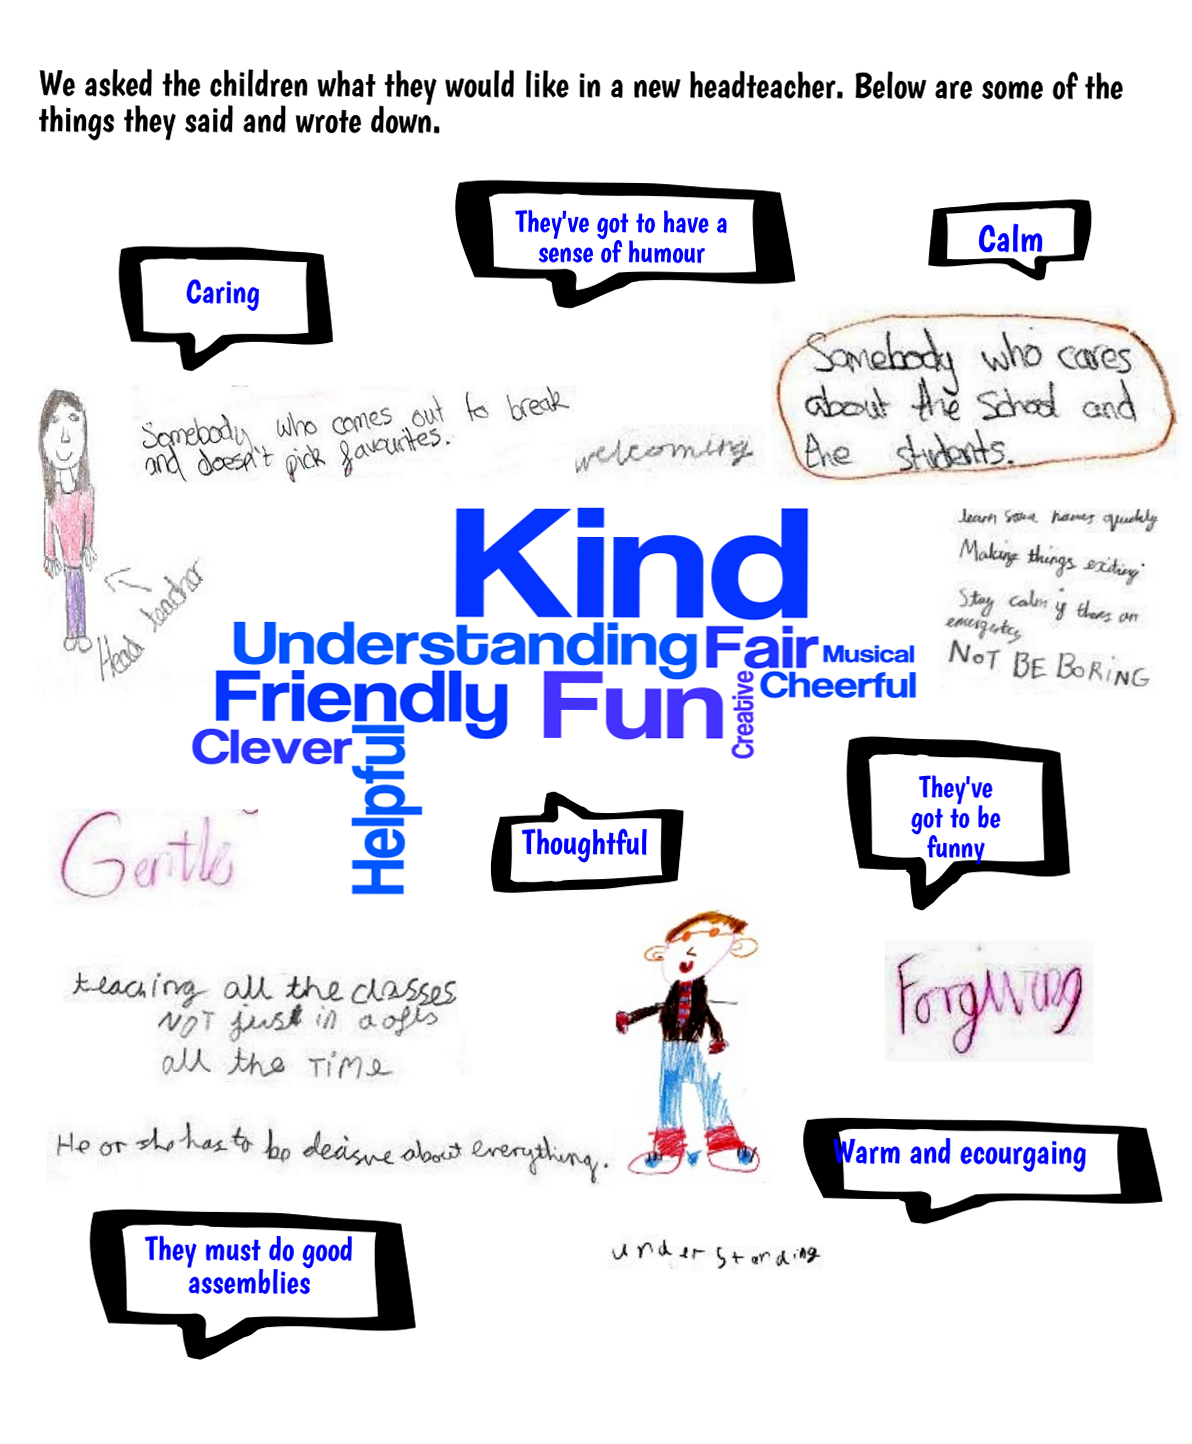 We asked the children what they would like in a new headteacher. Below are some of the
things they said and wrote down.
They've got to have a
sense of humour
Calm
Caring
Somebody who cares
about the School and
the students.
Somebody who comes out to break
and doesn't pick favourites.
welcoming
Head teacher
learn some names quickly
Making things exiting
Stay calm if theres an
emergency
NOT BE BORING
Kind
Understanding
Fair
Musical
Friendly
Fun
Creative
Cheerful
Clever
Helpful
They've
got to be
funny
Thoughtful
Gentle
Forgiving
teaching all the classes
NOT just in
all the TIME
He or she has to be decisive about everything.
Warm and ecourgaing
They must do good
assemblies
understanding